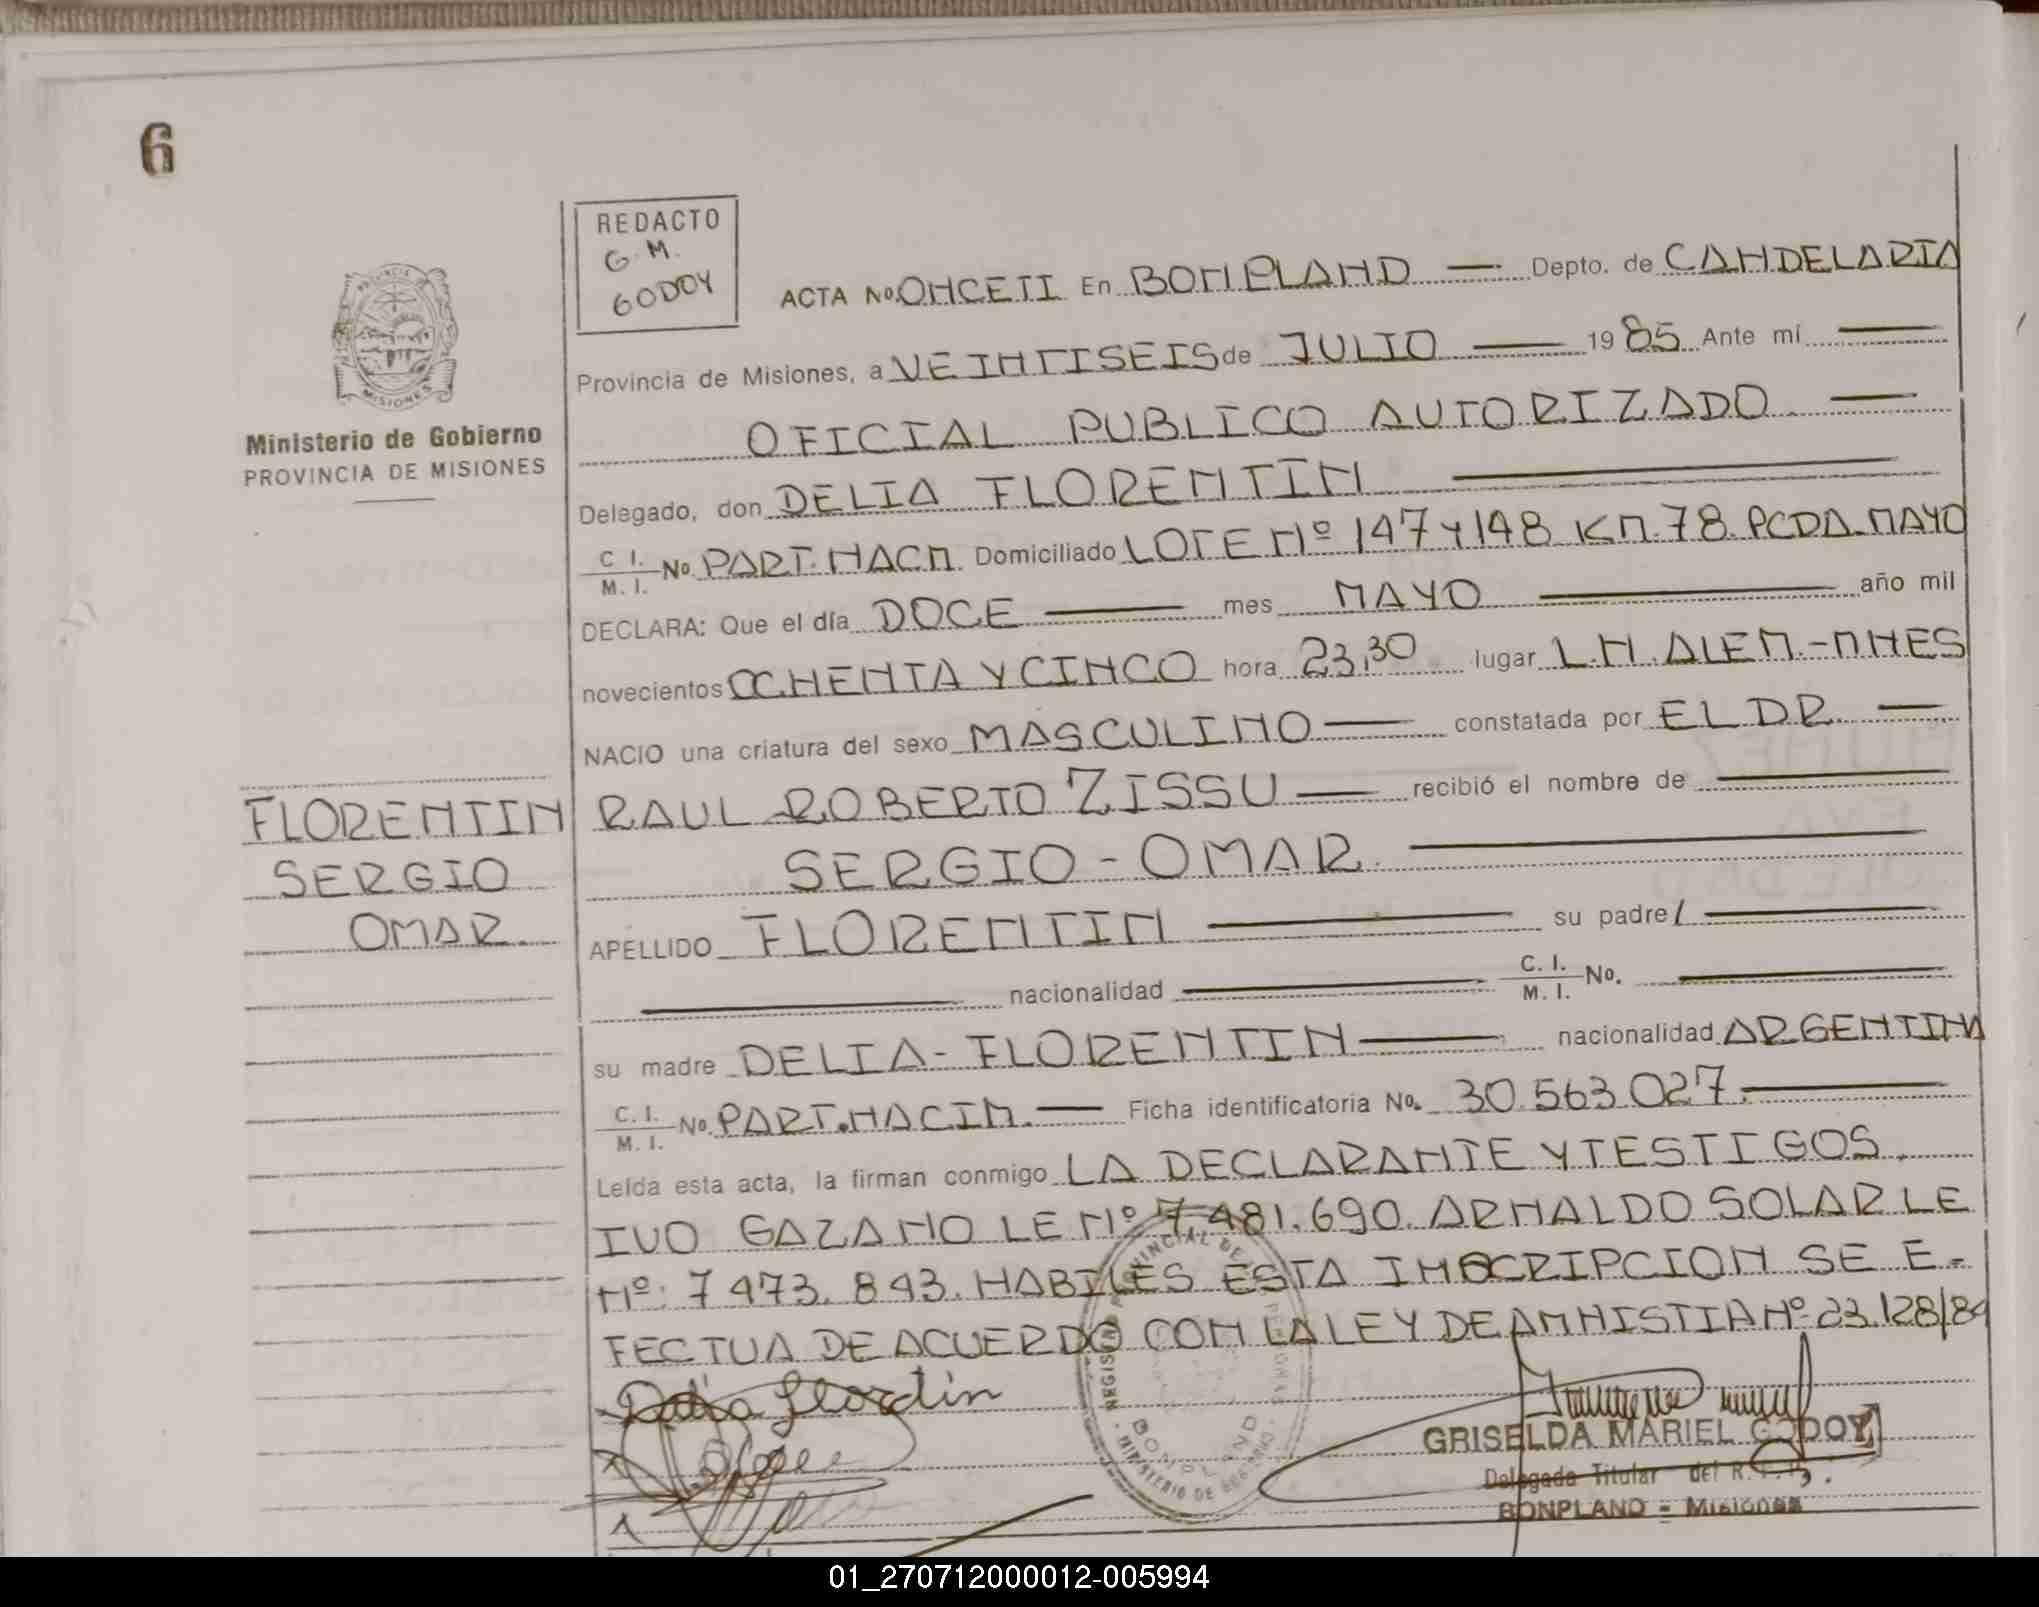 6
REDACTO
G. M.
GODOY
ACTA No. ONCE TI En BONPLAND — Depto. de CANDELARIA
Provincia de Misiones, a VEINTISEIS de JULIO — 1985 Ante mí —
OFICIAL PUBLICO AUTORIZADO —
Delegado, don DELIA FLORENTIN —
C. I. / M. I. No. PART. NACM. Domiciliado LOTE Nº 147 Y 148 KM. 78. PCDA. MAYO
DECLARA: Que el día DOCE — mes MAYO — año mil
novecientos OCHENTA Y CINCO hora 23,30 lugar L.N. ALEM.-MNES
NACIO una criatura del sexo MASCULINO — constatada por EL DR —
RAUL ROBERTO ZISSU — recibió el nombre de —
SERGIO - OMAR —
APELLIDO FLORENTIN — su padre/ —
— nacionalidad — C. I. / M. I. No. —
su madre DELIA - FLORENTIN — nacionalidad ARGENTINA
C. I. / M. I. No. PART. NACIM. — Ficha identificatoria No. 30.563.027.—
Leída esta acta, la firman conmigo LA DECLARANTE Y TESTIGOS.
IVO GAZANO LE Nº 7.481.690. ARNALDO SOLAR LE
Nº: 7473.843. HABILES ESTA INSCRIPCION SE E-
FECTUA DE ACUERDO CON LA LEY DE AMNISTIA Nº 23.128/84
Ministerio de Gobierno
PROVINCIA DE MISIONES
FLORENTIN
SERGIO
OMAR
MISIONES
BONPLAND
GRISELDA MARIEL GODOY
Delegada Titular del R.P.P.
BONPLAND - Misiones
01_270712000012-005994